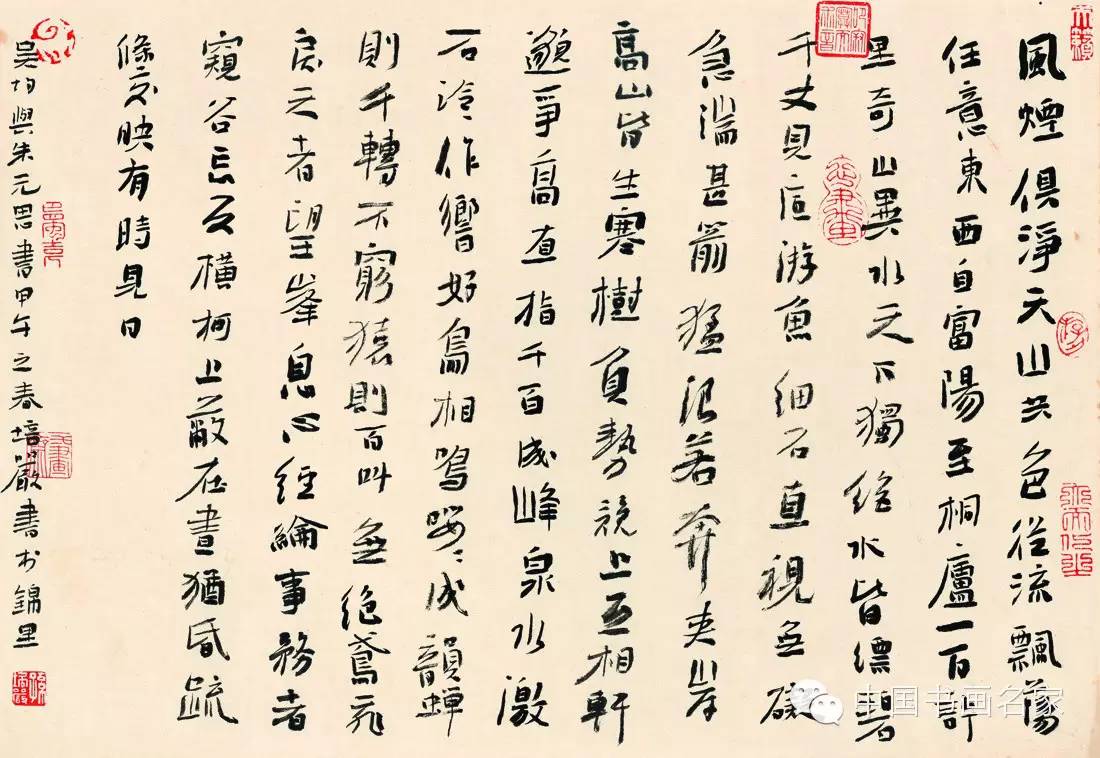 風煙俱淨天山共色從流飄蕩
任意東西自富陽至桐廬一百許
里奇山異水天下獨絕水皆縹碧
千丈見底游魚細石直視無礙
急湍甚箭猛浪若奔夾岸
高山皆生寒樹負勢競上互相軒
邈爭高直指千百成峰泉水激
石泠作響好鳥相鳴嚶〻成韻蟬
則千轉不窮猿則百叫無絕鳶飛
戾天者望峯息心經綸事務者
窺谷忘反橫柯上蔽在晝猶昏疏
條交映有時見日
吳均與朱元思書甲午之春培嚴書於錦里
中国书画名家